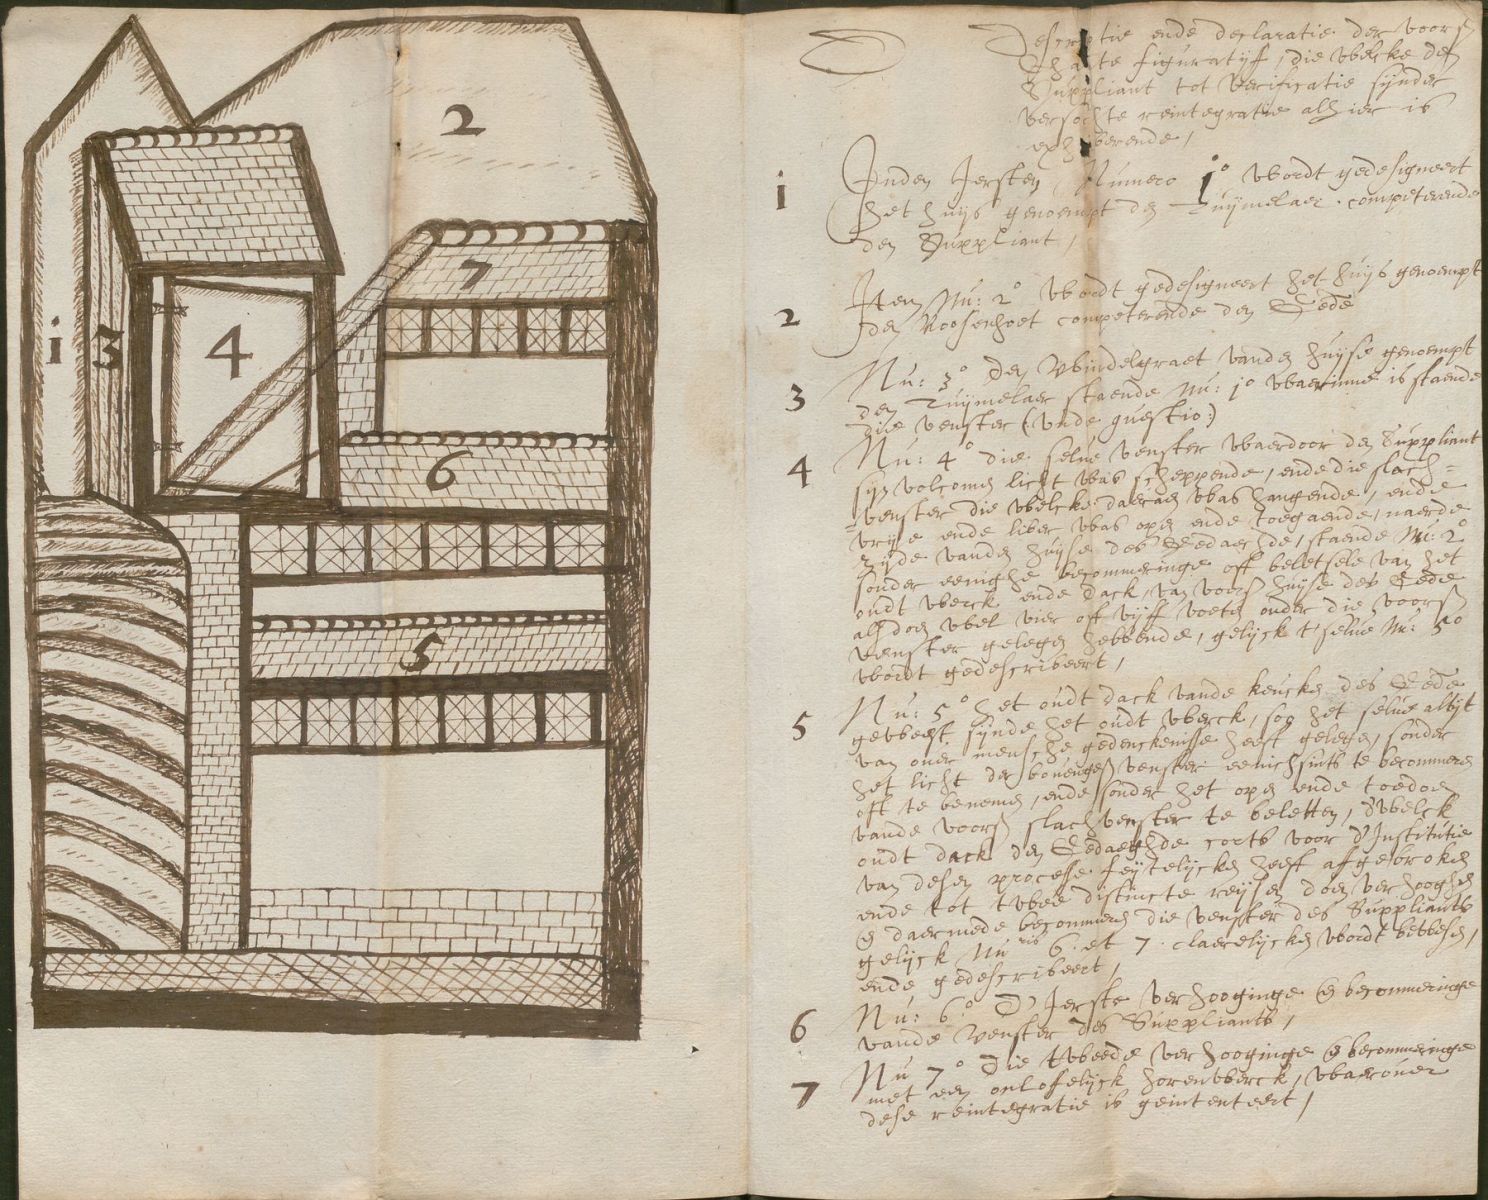 2
7
1
3
4
6
5
Descriptie ende declaratie der voors
Chaerte figuratijf, die welcke den
Suppliant tot verificatie sijnder
versochte reintegratie alhier is
exhiberende,
1 Inden Iersten Numero 1º wordt gedesigneert
het huijs genoempt den Tuijmelaer competerende
den Suppliant,
2 Item Nu: 2º wordt gedesigneert het huijs genoempt
den Roosenhoet competerende den Gede
3 Nu: 3º den Windelgraet vanden huijse genoempt
den Tuijmelaer staende Nu: 1º waerinne is staende
die venster (unde questio:)
4 Nu: 4º die selve venster waerdoor den Suppliant
sijn volcomen licht was scheppende, ende die slach=
venster die welcke daeraen was hangende, ende
vrije ende liber was open ende toegaende, naerde
zijde vanden huijse des Gedaechde, staende Nu: 2º
sonder eenighe becommeringe off beletsele van het
oudt werck ende dack, van voors huijse des Gede
als doen wel vier off vijff voeten onder die voors
venster gelegen hebbende, gelijck t'selve Nu: 5º
wordt gedescribeert,
5 Nu: 5º het oudt dack vande keucken des Gede
geweest sijnde het oudt werck, soo het selve altijt
van over mensche gedenckenisse heeft gelegen, sonder
het licht der bovenges venster eenichsints te becommeren
off te benemen, ende sonder het open ende toedoen
vande voors slachvenster te beletten, d'welck
oudt dack den Gedaeghde corts voor d'Institutie
van desen processe feijtelijcken heeft afgebroken
ende tot twee distincte reijsen doen verhooghen
en daermede becommeren die venster des Suppliants
gelijck Nu ris 6. et 7. claerelijcken wordt bewesen,
ende gedescribeert,
6 Nu: 6º D'Ierste verhooginge en becommeringe
vande venster des Suppliants,
7 Nu 7º Die tweede verhooginge en becommeringe
met een onlofelijck horenwerck, waerover
dese reintegratie is geintenteert,